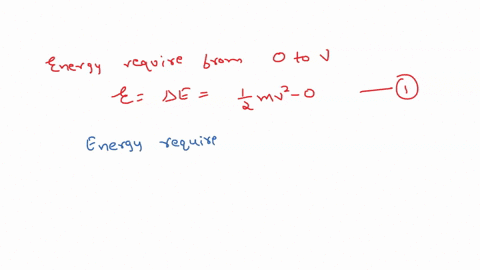 Energy require from 0 to V
E = ΔE = 1/2 mv² - 0 —— ①
Energy require